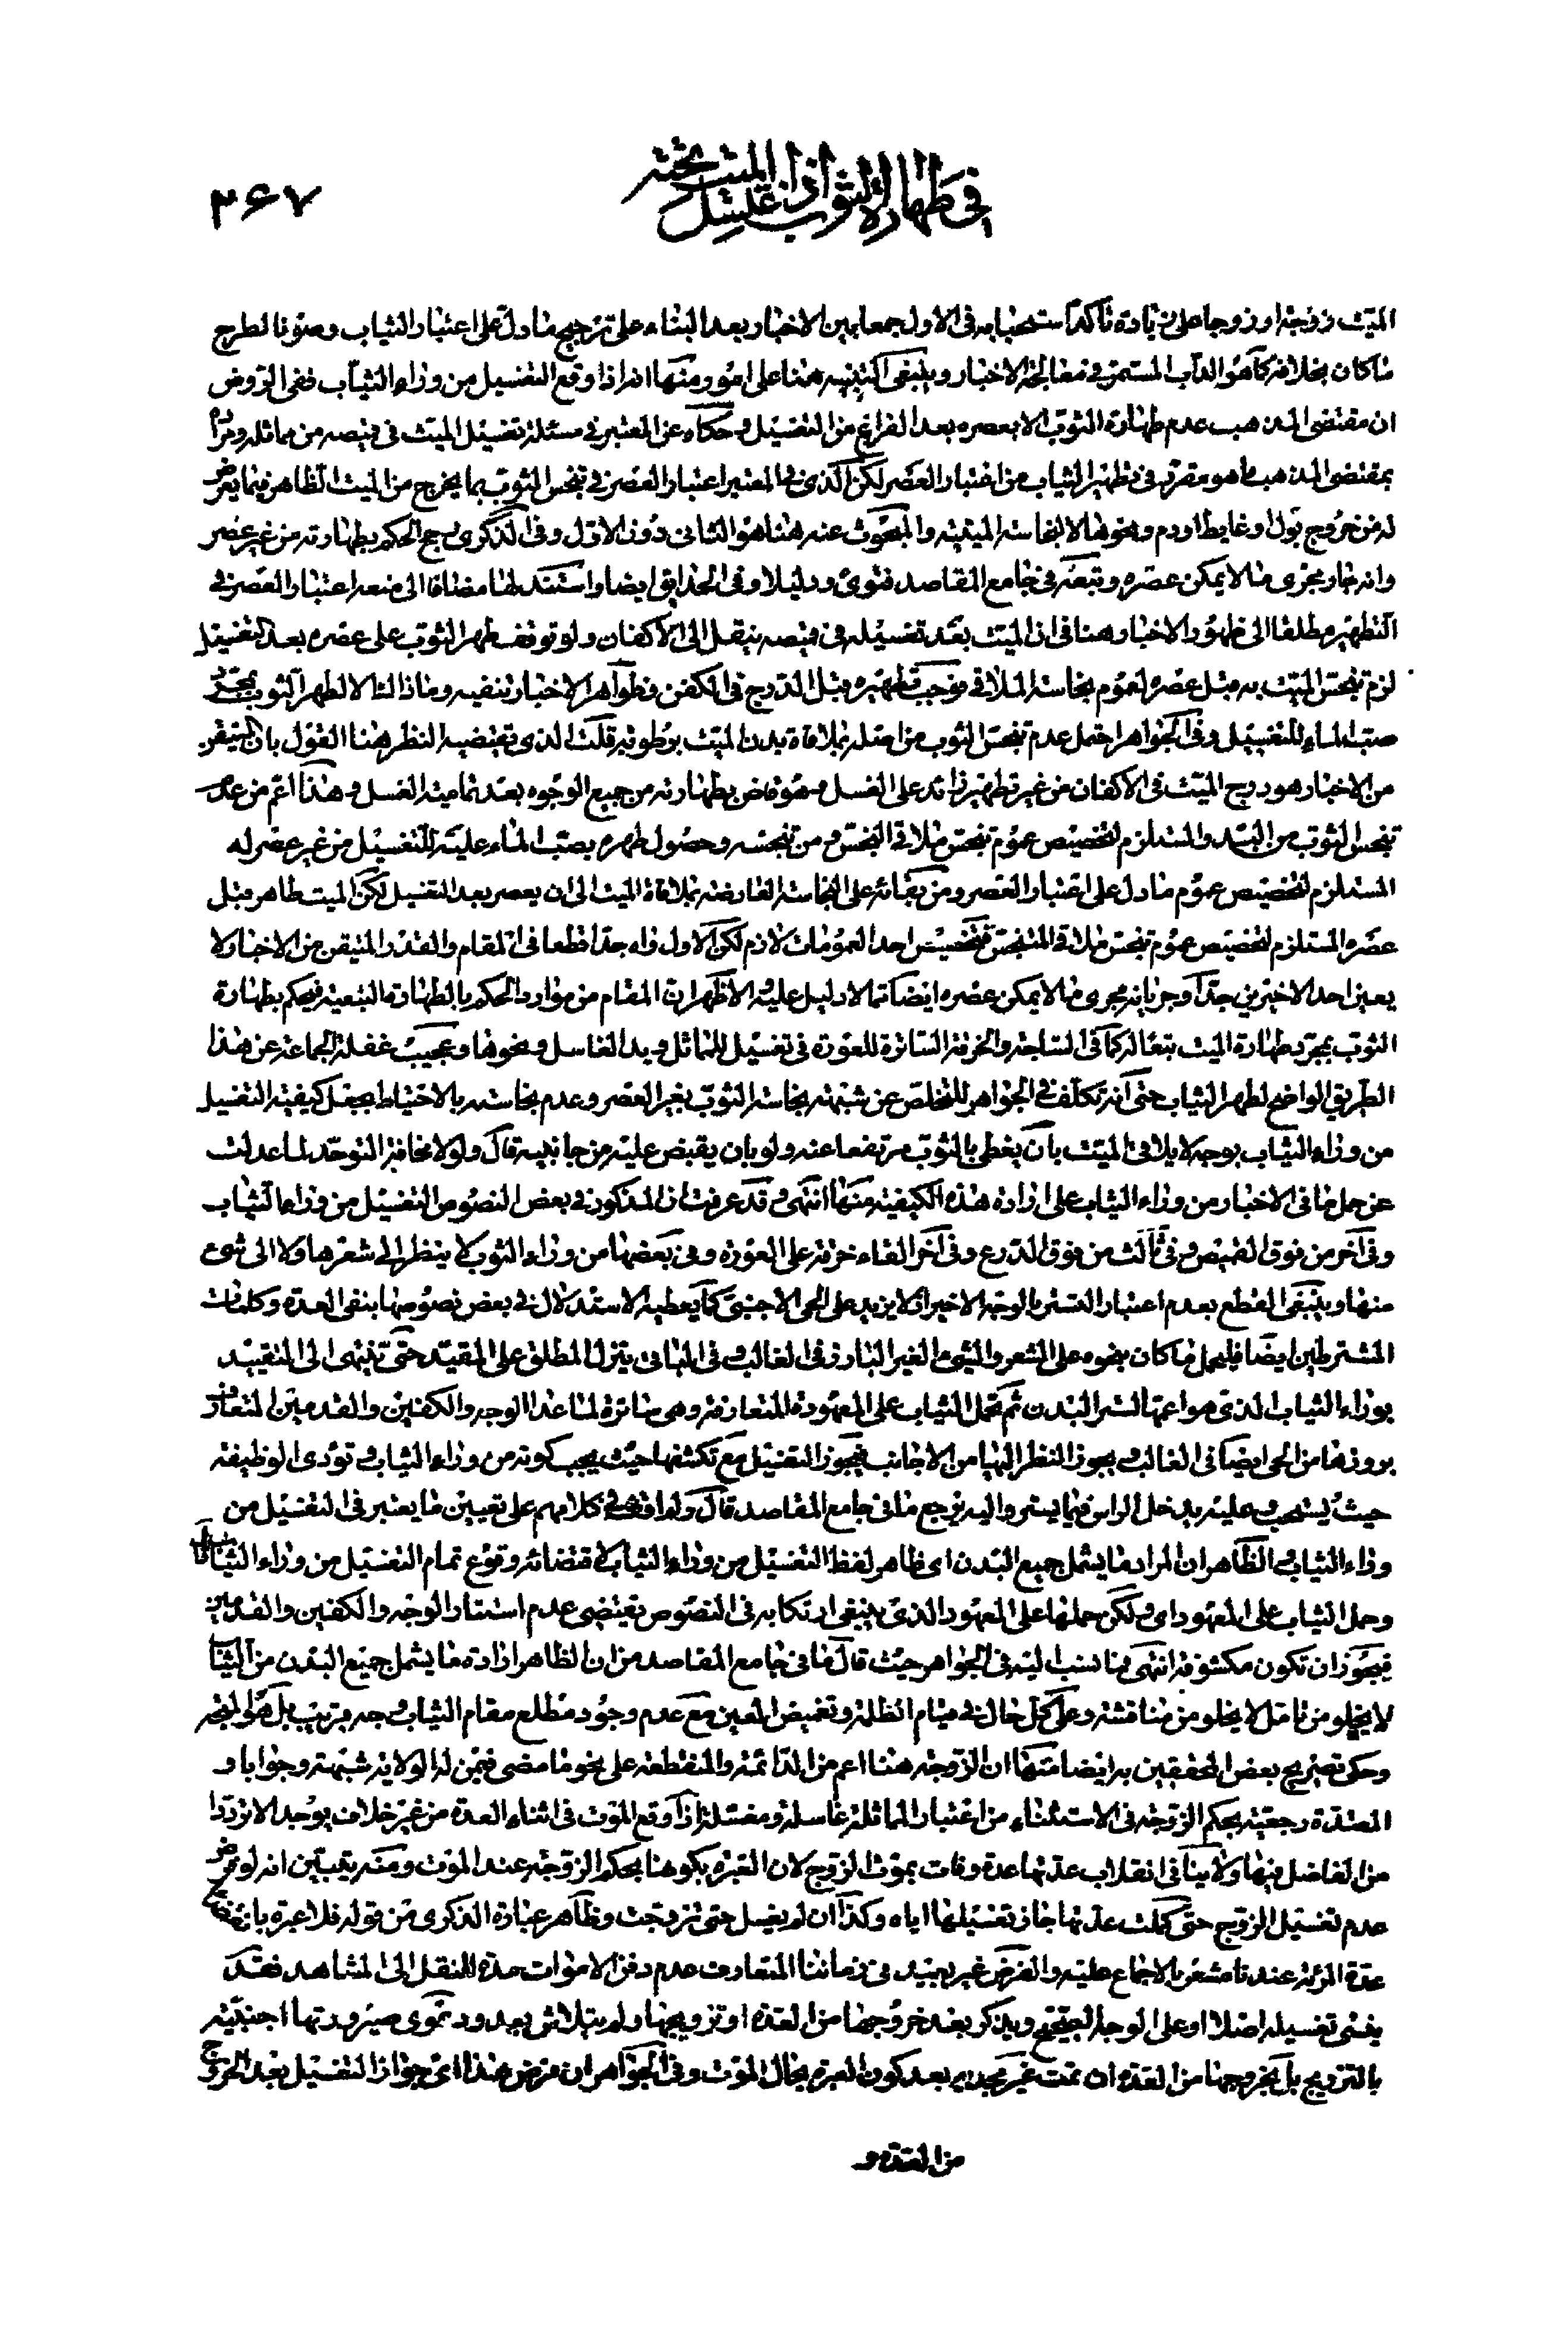 في طهارة الثوب اذا غسل الميت تحته
٣۶٧
الميّت زوجة او زوجا على زيادة تأكّد استحبابه في الاول جمعا بين الاخبار بعد البناء على ترجيح ما دلّ على اعتبار الثياب وصونا لطرح
ما كان بخلافه كما هو الدأب المستمر في معالجة الاخبار وينبغي التنبيه هنا على امور ومنها انه اذا وقع التغسيل من وراء الثياب ففي الروض
ان مقتضى المذهب عدم طهارة الثوب الا بعصره بعد الفراغ من التغسيل وحكاه عن المعتبر في مسئلة تغسيل الميت في قميصه من مماثله
بمقتضى المذهب ما هو مقرر في تطهير الثياب من اعتبار العصر لكن الذي في المعتبر اعتبار العصر في تنجس الثوب بما يخرج من الميت الظاهر فيما يعرض
له من خروج بول او غايط او دم ونحوها لا بنجاسته الميتية والمبحوث عنه هنا هو الثاني دون الاول وفي الذكرى رجح الحكم بطهارته من غير عصر
وانه جار مجرى ما لا يمكن عصره وتبعه في جامع المقاصد فتوى ودليلا وفي الحدايق ايضا واستند لها مضافا الى منعه اعتبار العصر في
التطهير مطلقا الى ظهور الاخبار هنا في ان الميت بعد تغسيله في قميصه ينقل الى الاكفان ولو توقف طهر الثوب على عصره بعد التغسيل
لزم تنجس الميّت به قبل عصره لعموم نجاسة الملاقي فيجب تطهيره قبل الدرج في الكفن وظواهر الاخبار تنفيه وما ذاك الا لطهر الثوب بمجرّد
صب الماء للتغسيل وفي الجواهر احتمل عدم تنجس الثوب من اصله بملاقاة بدن الميّت برطوبة قلت الذي يقتضيه النظر هنا القول بان المتيقن
من الاخبار هو درج الميّت في الاكفان من غير تطهير زائد على الغسل وهو قاض بطهارته من جميع الوجوه بعد تمامية الغسل وهذا اعم من عدم
تنجس الثوب من البدن والمستلزم لتخصيص عموم تنجس ملاقي النجس ومن تنجسه وحصول طهره بصب الماء عليه للتغسيل من غير عصر له
المستلزم لتخصيص عموم ما دل على اعتبار العصر ومن بقائه على النجاسة العارضة بملاقاة الميت الى ان يعصر بعد التغسيل لكن الميت طاهر قبل
عصره المستلزم لتخصيص عموم تنجس ملاقي المتنجس فتخصيص احد العمومات لازم لكن الاول واه جدا قطعا في المقام والقدر المتيقن من الاخبار لا
يعين احد الاخيرين جدّا وجريانه مجرى ما لا يمكن عصره ايضا مما لا دليل عليه الا ظهر ان المقام من موارد الحكم بالطهارة التبعية فيحكم بطهارة
الثوب بمجرد طهارة الميت تبعا له كما في الساجة والخرقة الساترة للعورة في تغسيل المماثل ويد الغاسل ونحوها وعجيب غفلة الجماعة عن هذا
الطريق الواضح لطهر الثياب حتى انه تكلّف في الجواهر للتخلص عن شبهة نجاسة الثوب بغير العصر وعدم نجاسته بالاحتياط بجعل كيفية التغسيل
من وراء الثياب بوجه لا يلاقي الميّت بان يغطى بالثوب مرتفعا عنه ولو بان يقبض عليه من جانبيه قال ولولا مخافة التوحّد لما عدلت
عن حمل ما في الاخبار من وراء الثياب على ارادة هذه الكيفية منها انتهى وقد عرفت ان المذكور في بعض النصوص التغسيل من وراء الثياب
وفي آخر من فوق القميص وفي ثالث من فوق الدرع وفي آخر القاء خرقة على العورة وفي بعضها من وراء الثوب لا ينظر الى شعرها ولا الى شيء
منها وينبغي القطع بعدم اعتبار التستر بالوجه الاخير اذ لا يزيد على الحي الاجنبي كما يعطيه الاستدلال في بعض نصوصها بنفي العدة وكلمات
المشترطين ايضا فليحمل ما كان بنحوه على الشعر والشيء الغير البارز في الغالب وفي الباقي يتنزل المطلق على المقيد حتى تنتهي الى التقييد
بوراء الثياب الذي هو اعمها لستر البدن ثم تحمل الثياب على المعهودة المتعارفة وهي ساترة لما عدا الوجه والكفين والقدمين المتعارف
بروزها من الحي ايضا في الغالب ويجوز النظر اليها من الاجانب فيجوز التغسيل مع تكشفها حيث يجب كونه من وراء الثياب وتؤدى الوظيفة
حيث يستحب عليه يدخل الراس فيما يستر واليه يرجع ما في جامع المقاصد قال ولم اقف في كلامهم على تعيين ما يعتبر في التغسيل من
وراء الثياب والظاهر ان المراد ما يشمل جميع البدن اي ظاهر لفظ التغسيل من وراء الثياب لاقتضائه وقوع تمام التغسيل من وراء الثياب قال
وحمل الثياب على المعهود اي ولكن حملها على المعهود الذي ينبغي ارتكابه في النصوص يقتضي عدم استتار الوجه والكفين والقدمين
فيجوز ان تكون مكشوفة انتهى فما نسب اليه في الجواهر حيث قال ما في جامع المقاصد من ان الظاهر ارادة ما يشمل جميع البدن من الثياب
لا يخلو من تامّل لا يخلو من مناقشة وعلى كل حال في قيام الظلمة وتغميض العين مع عدم وجود مطلع مقام الثياب وجه قريب بل هو المتجه
وحكى تصريح بعض المحققين به ايضا ومنها ان الزوجة هنا اعم من الدائمة والمنقطعة على نحو ما مضى فيمن له الولاية شبهة وجوابا و
المعتدة رجعية بحكم الزوجة في الاستثناء من اعتبار المماثلة غاسلة ومغسّلة اذا وقع الموت في اثناء العدة من غير خلاف يوجد الا تردّدا
من الفاضل فيها ولا ينافي انقلاب عدتها عدة وفات بموت الزوج لان العبرة بكونها بحكم الزوجة عند الموت ومنه يتبيّن انه لو فرض
عدم تغسيل الزوج حتى كملت عدتها جاز تغسيلها اياه وكذا ان لم يغسل حتى تزوجت وظاهر عبارة الذكرى من قوله فلا عبرة بانقضاء
عدة المرئة عندنا مشعر بالاجماع عليه والفرض غير بعيد في زماننا المتعارف عدم دفن الاموات مدة للنقل الى المشاهد فقد
ينسى تغسيله اصلا او على الوجه الصحيح ويذكر بعد خروجها من العدة او تزويجها ولم يتلاش بعد ودعوى صيرورتها اجنبيّة
بالتزويج بل بخروجها من العدة ان تمت غير مجدية بعد كون العبرة بحال الموت وفي الجواهر ان فرض هذا اي جواز التغسيل بعد الخروج
من العدة و